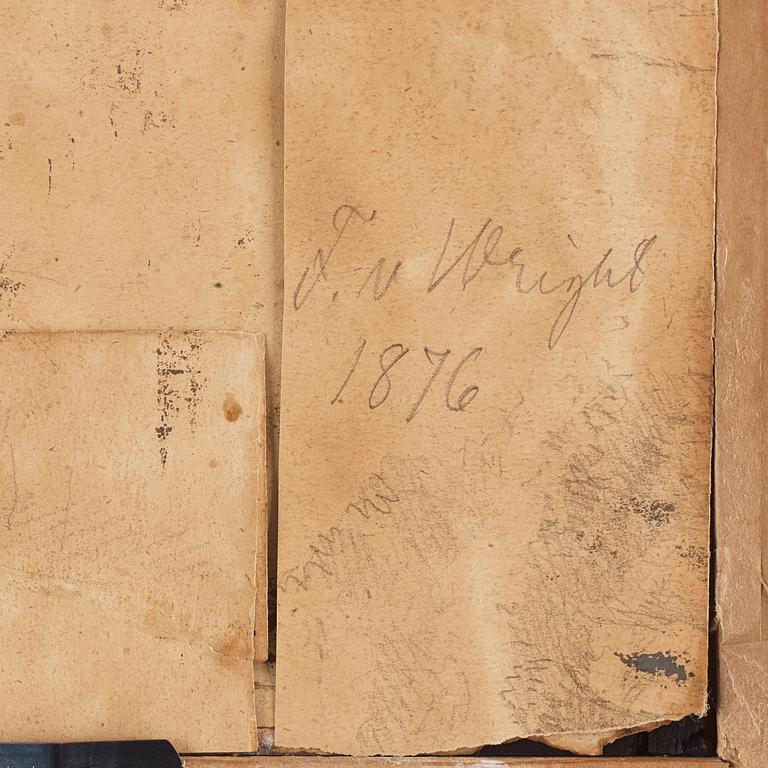 F. v Wright
1876